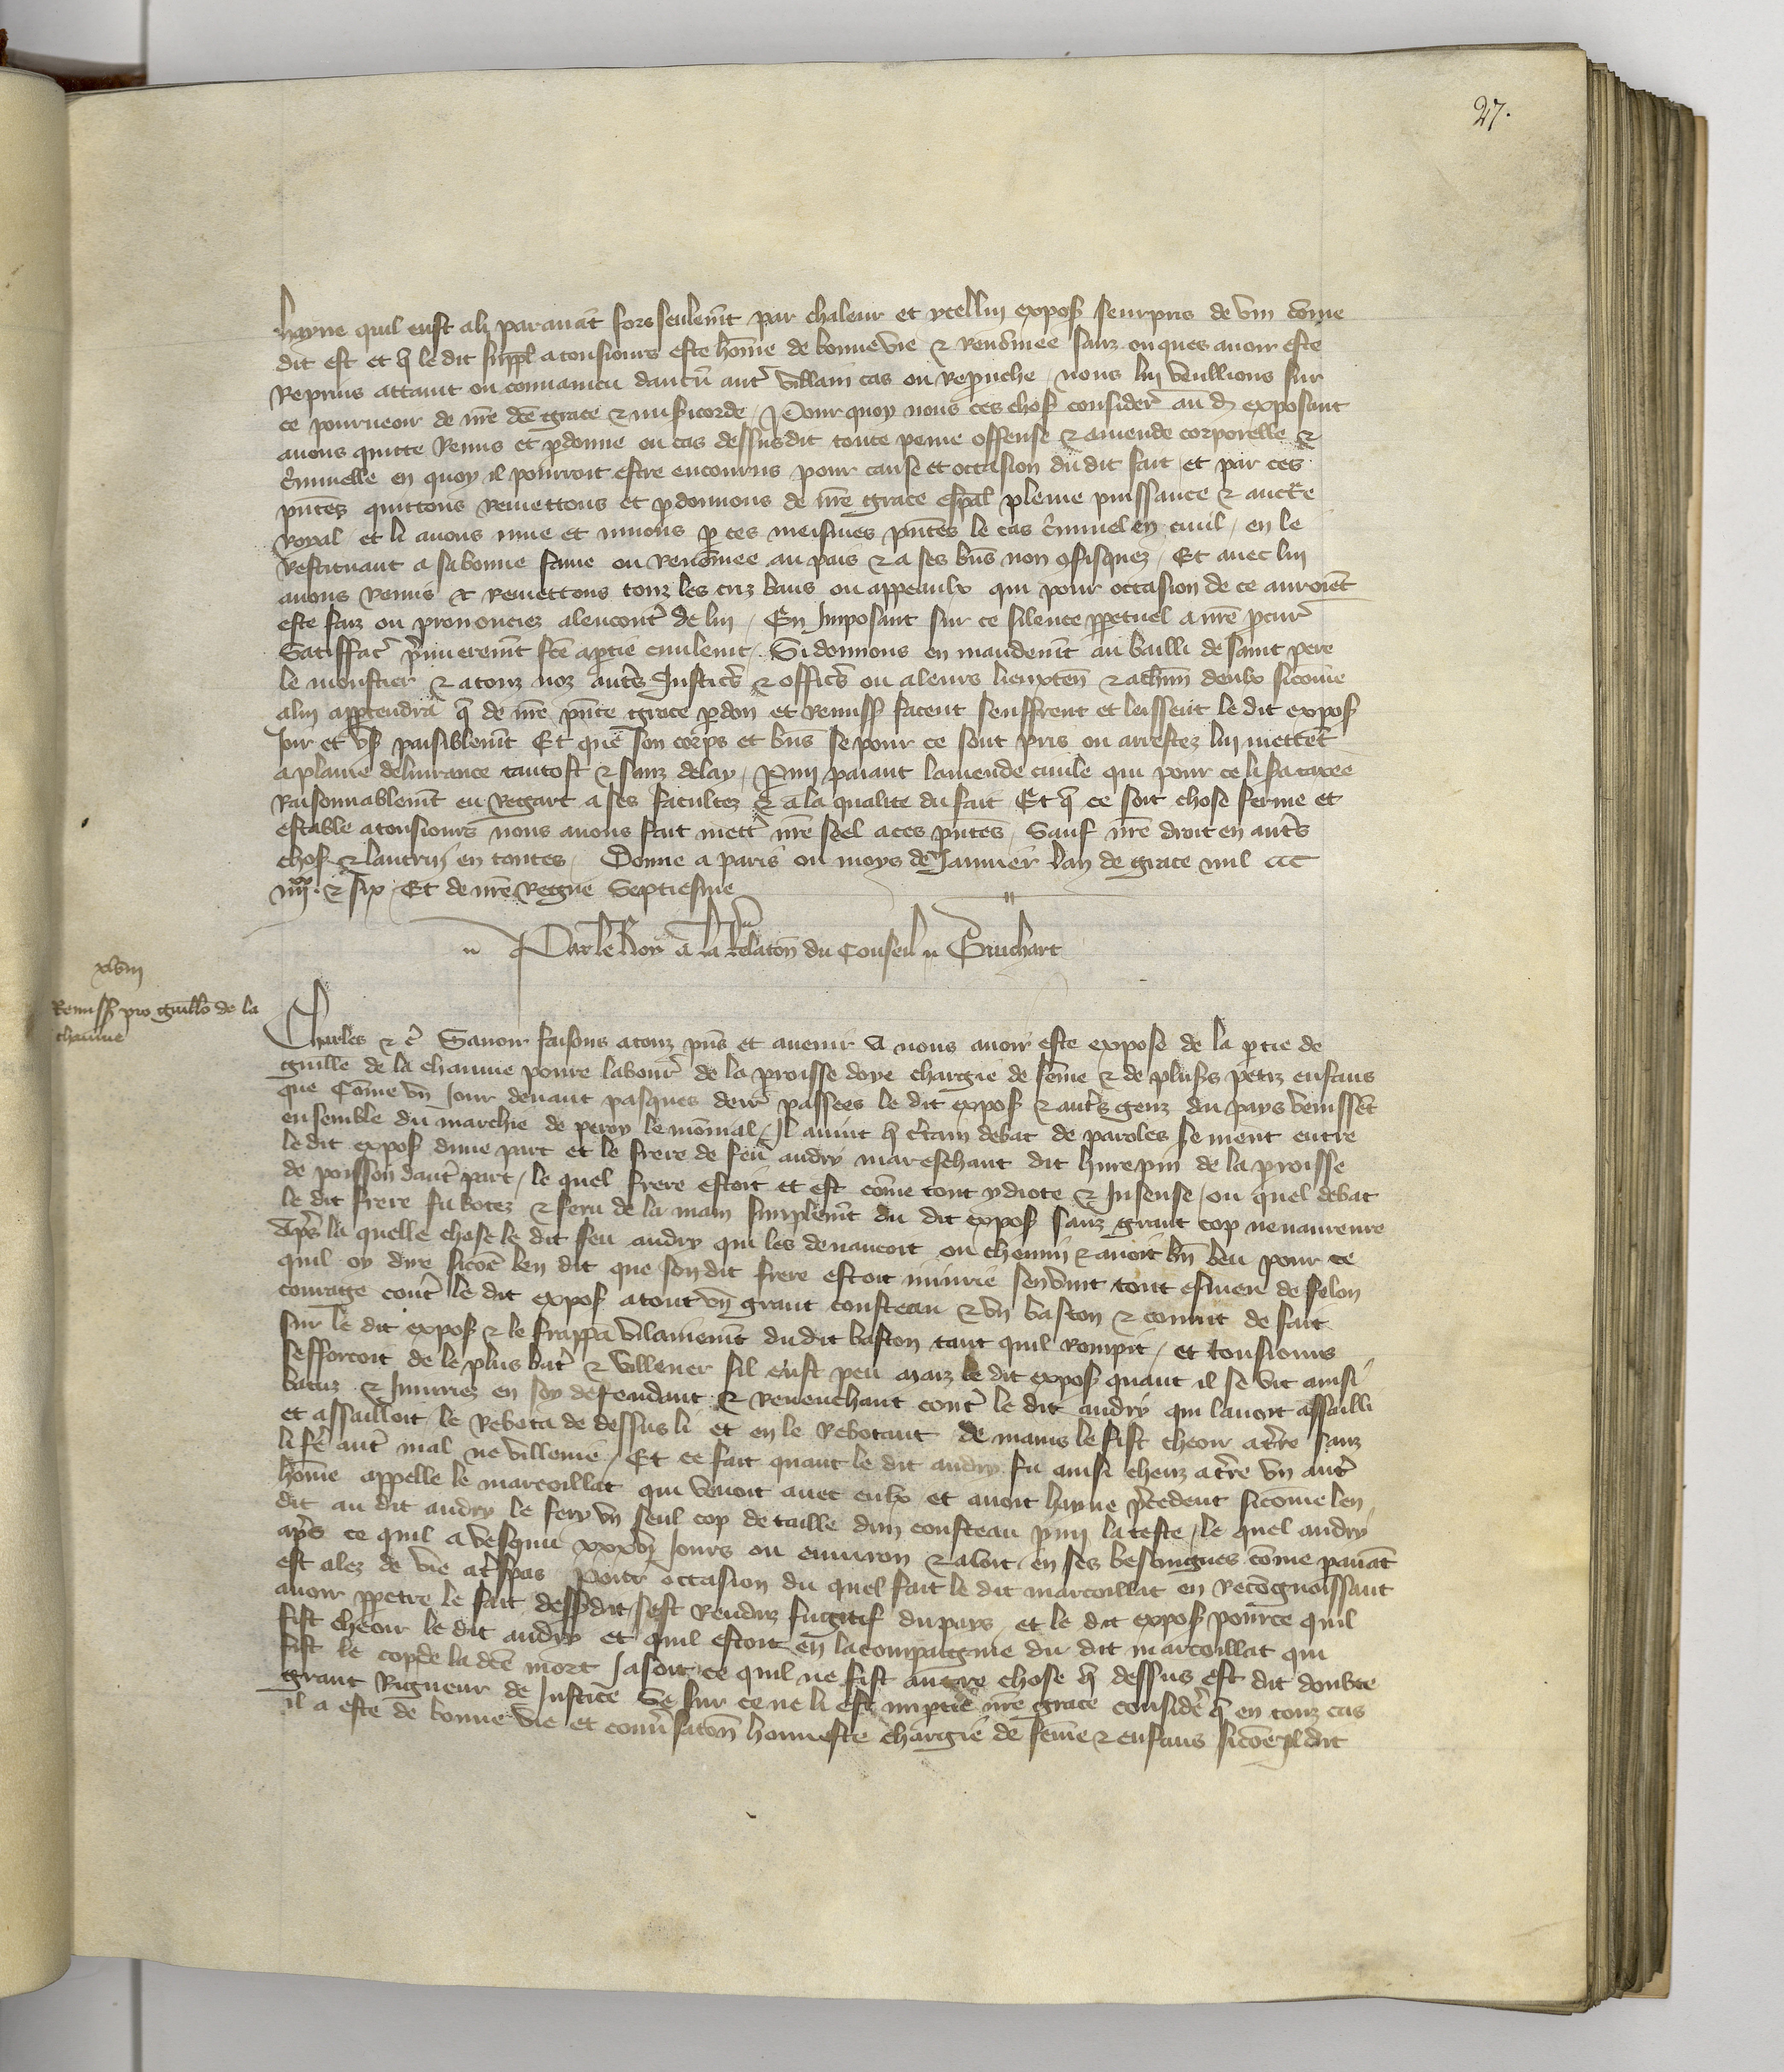 27.
hayne quil eust a li parauāt fors seulemt par chaleur et ycellui expos seurpris de vin come
dit est et q̄ le dit suppl a tousiours este hōme de bonne vie & renōmee sanz onques auoir este
repris attaint ou conuaincu dautr̄ autr̄ villain cas ou reprouche nous lui veullions sur
ce pourueoir de nr̄e dc̄e grace & misicorde / Pour quoy nous ces chos̄ considerr̄ au dit exposant
auons quitte remis et pdonne ou cas dessusdit toute peine offense & amende corporelle &
c̄iminelle en quoy il pourroit estre encourus pour cause et occasion du dit fait et par ces
pn̄tes quittons remettons et pdonnons de nr̄e grace esp̄al pleine puissance & aucte
royal et li auons mue et muons p ces meismes pn̄tes le cas c̄iminel en ciuil / en le
restituant a sa bonne fame ou renōmee au pais & a ses bn̄s non 9fisquez / Et auec lui
auons remis & remettons touz les criz bans ou appeaulx qui pour occasion de ce auroiēt
este faiz ou prononciez alencontr̄ de lui / En Imposant sur ce silence ppetuel a nr̄e pcur̄
Satisffac̄ p̄mieremt fc̄e a ptie ciuilemt / Si donnons en mandemt au bailli de saint pere
le moustier & a touz noz autr̄s Justic̄s & offic̄s ou a leurs lieuxten̄ & a chun̄ deulx sicōme
a lui apptendra q̄ de nr̄e pn̄te grace pdon et remiss̄ facent seuffrent et laissent le dit expos̄
Joir et vs̄ paisiblemt Et que son corps et bn̄s se pour ce sont pris ou arrestez lui mettēt
a plaine deliurance tantost & sanz delay / Pmi paiant lamende ciuile qui pour ce li sa taxee
raisonnablemt eu regart a ses facultez & a la qualite du fait Et q̄ ce soit chose ferme et
estable a tousiours nous auons fait mettr̄ nr̄e seel a ces pn̄tes / Sauf nr̄e droit en autr̄s
chos̄ & lautrui en toutes / Donne a paris ou moys de Januier lan de grace mil CCC
iiij.xx & six Et de nr̄e regne septiesme
Par le Roy a la relaton̄ du Conseil Guichart
xlviij
Remiss̄ pro guill̄o de la
chaume
Charles &c̄ Sauoir faisons a touz pn̄s et auenir A nous auoir este expose de la ptie de
guill̄e de la chaume poure labour̄ de la proisse doye chargie de fēme & de plus̄s petiz enfans
que Cōme vn Jour deuant pasques derr̄ passees le dit expos̄ & autr̄s genz du pays venissēt
ensemble du marchie de peroy le mōnial / Il auint q̄ c̄tain debat de paroles se meut entre
le dit expos̄ dune part et le frere de feu andry mareschaut dit hurepin de la proisse
de poisson dautr̄ part / le quel frere estoit et est cōme tout ydiote & Insense / ou quel debat
le dit frere fu botez & feru de la main simplemt du dit expos̄ sanz grant cop ne naureure
Apr̄s la quelle chose le dit feu andry qui les deuancoit ou chemin & auoit bn̄ beu pour ce
quil oy dire sicōe len dit que son dit frere estoit iniurie senvint tout esmeu de felon
courage contr̄ le dit expos̄ atout vn grant cousteau & vn baston & couru de fait
sur le dit expos̄ & le frappa vilainemt du dit baston tant quil rompit / et tousiours
sefforcoit de le plus batr̄ & villener sil eust peu maiz le dit expos̄ quant il se vit ainsi
batuz & Iniuriez en soy defendant & reuenchant contr̄ le dit andry qui lauoit assailli
et assailloit le rebota de dessus li et en le rebotant de mains le fist cheoir a tr̄re sanz
li fe autr̄ mal ne villenie / Et ce fait quant le dit andry fu ainsi cheuz a tr̄re vn autr̄
hōme appelle le marcoillat qui venoit auec eulx et auoit hayne p̄cedent sicōme len
dit au dit andry le fery vn seul cop de taille dun cousteau pmi la teste / le quel andry
apr̄s ce quil a vesqui xxxvj Jours ou enuiron & aloit en ses besoingnes cōme pauāt
est alez de vie a tr̄spas Pour occasion du quel fait le dit marcoillat en recōgnoissant
auoir ppetre le fait dessusdit sest renduz fugitif du pays et le dit expos̄ pource quil
fist cheoir le dit andry et quil estoit en la compaignie du dit marcoillat qui
fist le cop de la dc̄e mort Jasoit ce quil ne fist autre chose q̄ dessus est dit doubte
grant rigueur de Justice se sur ce ne li est imptie nr̄e grace considere q̄ en touz cas
il a este de bonne vie et conu̅saton̄ honneste chargie de fēme & enfans sicōe il dit